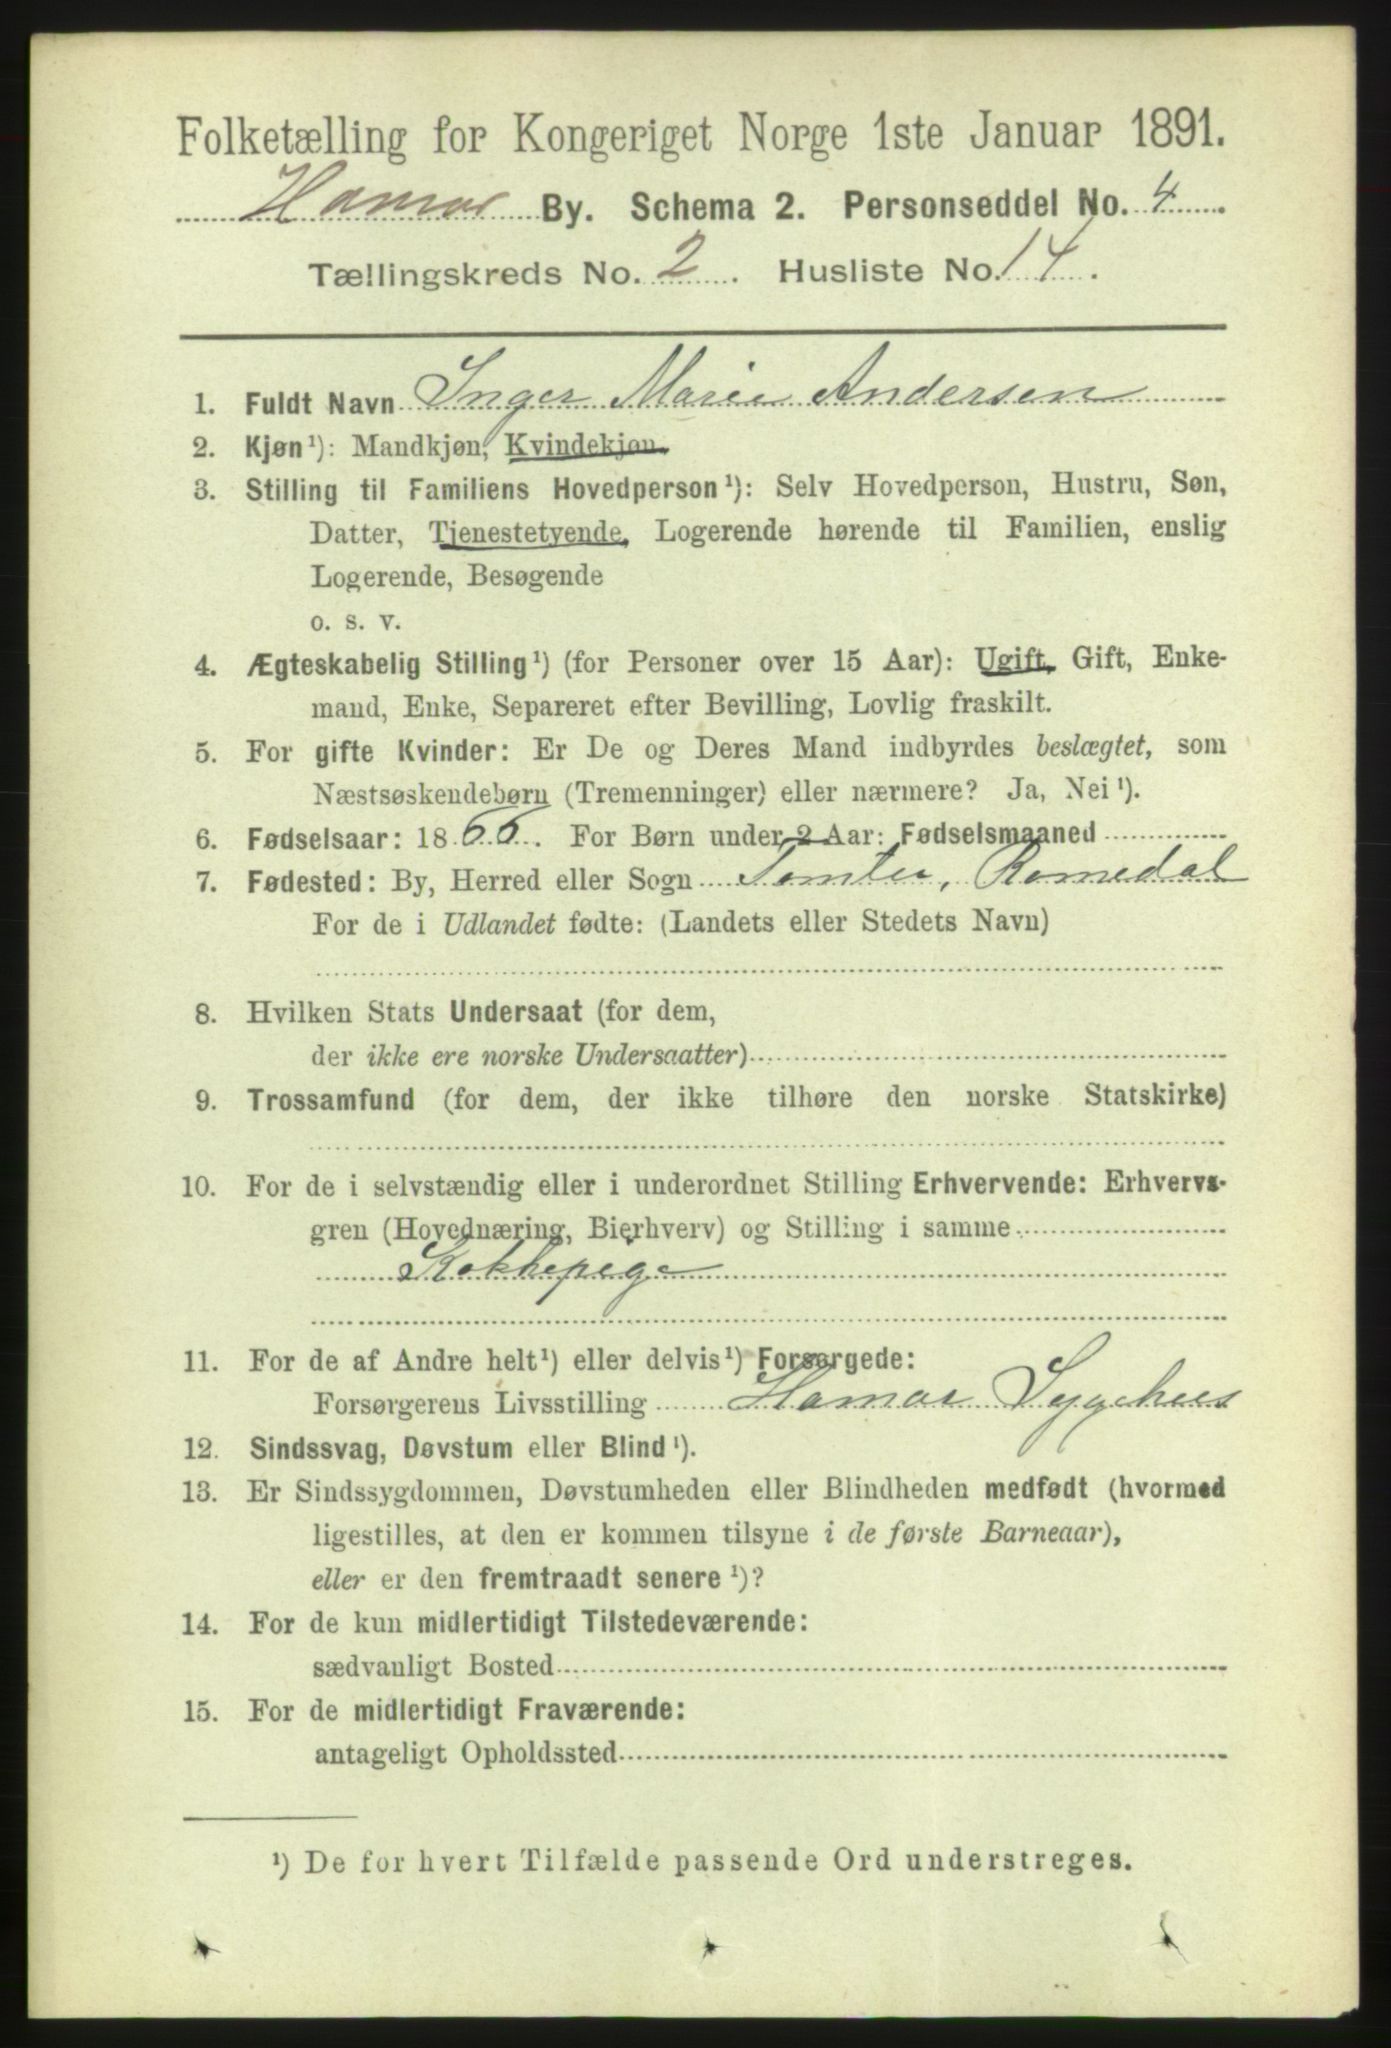 Folketælling for Kongeriget Norge 1ste Januar 1891.
Hamar By. Schema 2. Personseddel No. 4
Tællingskreds No. 2. Husliste No. 14.
1. Fuldt Navn Inger Marie Andersen
2. Kjøn¹): Mandkjøn, Kvindekjøn.
3. Stilling til Familiens Hovedperson¹): Selv Hovedperson, Hustru, Søn,
Datter, Tjenestetyende, Logerende hørende til Familien, enslig
Logerende, Besøgende
o. s. v.
4. Ægteskabelig Stilling¹) (for Personer over 15 Aar): Ugift, Gift, Enke-
mand, Enke, Separeret efter Bevilling, Lovlig fraskilt.
5. For gifte Kvinder: Er De og Deres Mand indbyrdes beslægtet, som
Næstsøskendebørn (Tremenninger) eller nærmere? Ja, Nei¹).
6. Fødselsaar: 1866. For Børn under 2 Aar: Fødselsmaaned
7. Fødested: By, Herred eller Sogn Tomter, Romedal
For de i Udlandet fødte: (Landets eller Stedets Navn)
8. Hvilken Stats Undersaat (for dem,
der ikke ere norske Undersaatter)
9. Trossamfund (for dem, der ikke tilhøre den norske Statskirke)
10. For de i selvstændig eller i underordnet Stilling Erhvervende: Erhvervs-
gren (Hovednæring, Bierhverv) og Stilling i samme
Kokkepige
11. For de af Andre helt¹) eller delvis¹) Forsørgede:
Forsørgerens Livsstilling Hamar Sygehus
12. Sindssvag, Døvstum eller Blind¹).
13. Er Sindssygdommen, Døvstumheden eller Blindheden medfødt (hvormed
ligestilles, at den er kommen tilsyne i de første Barneaar),
eller er den fremtraadt senere¹)?
14. For de kun midlertidigt Tilstedeværende:
sædvanligt Bosted
15. For de midlertidigt Fraværende:
antageligt Opholdssted
¹) De for hvert Tilfælde passende Ord understreges.